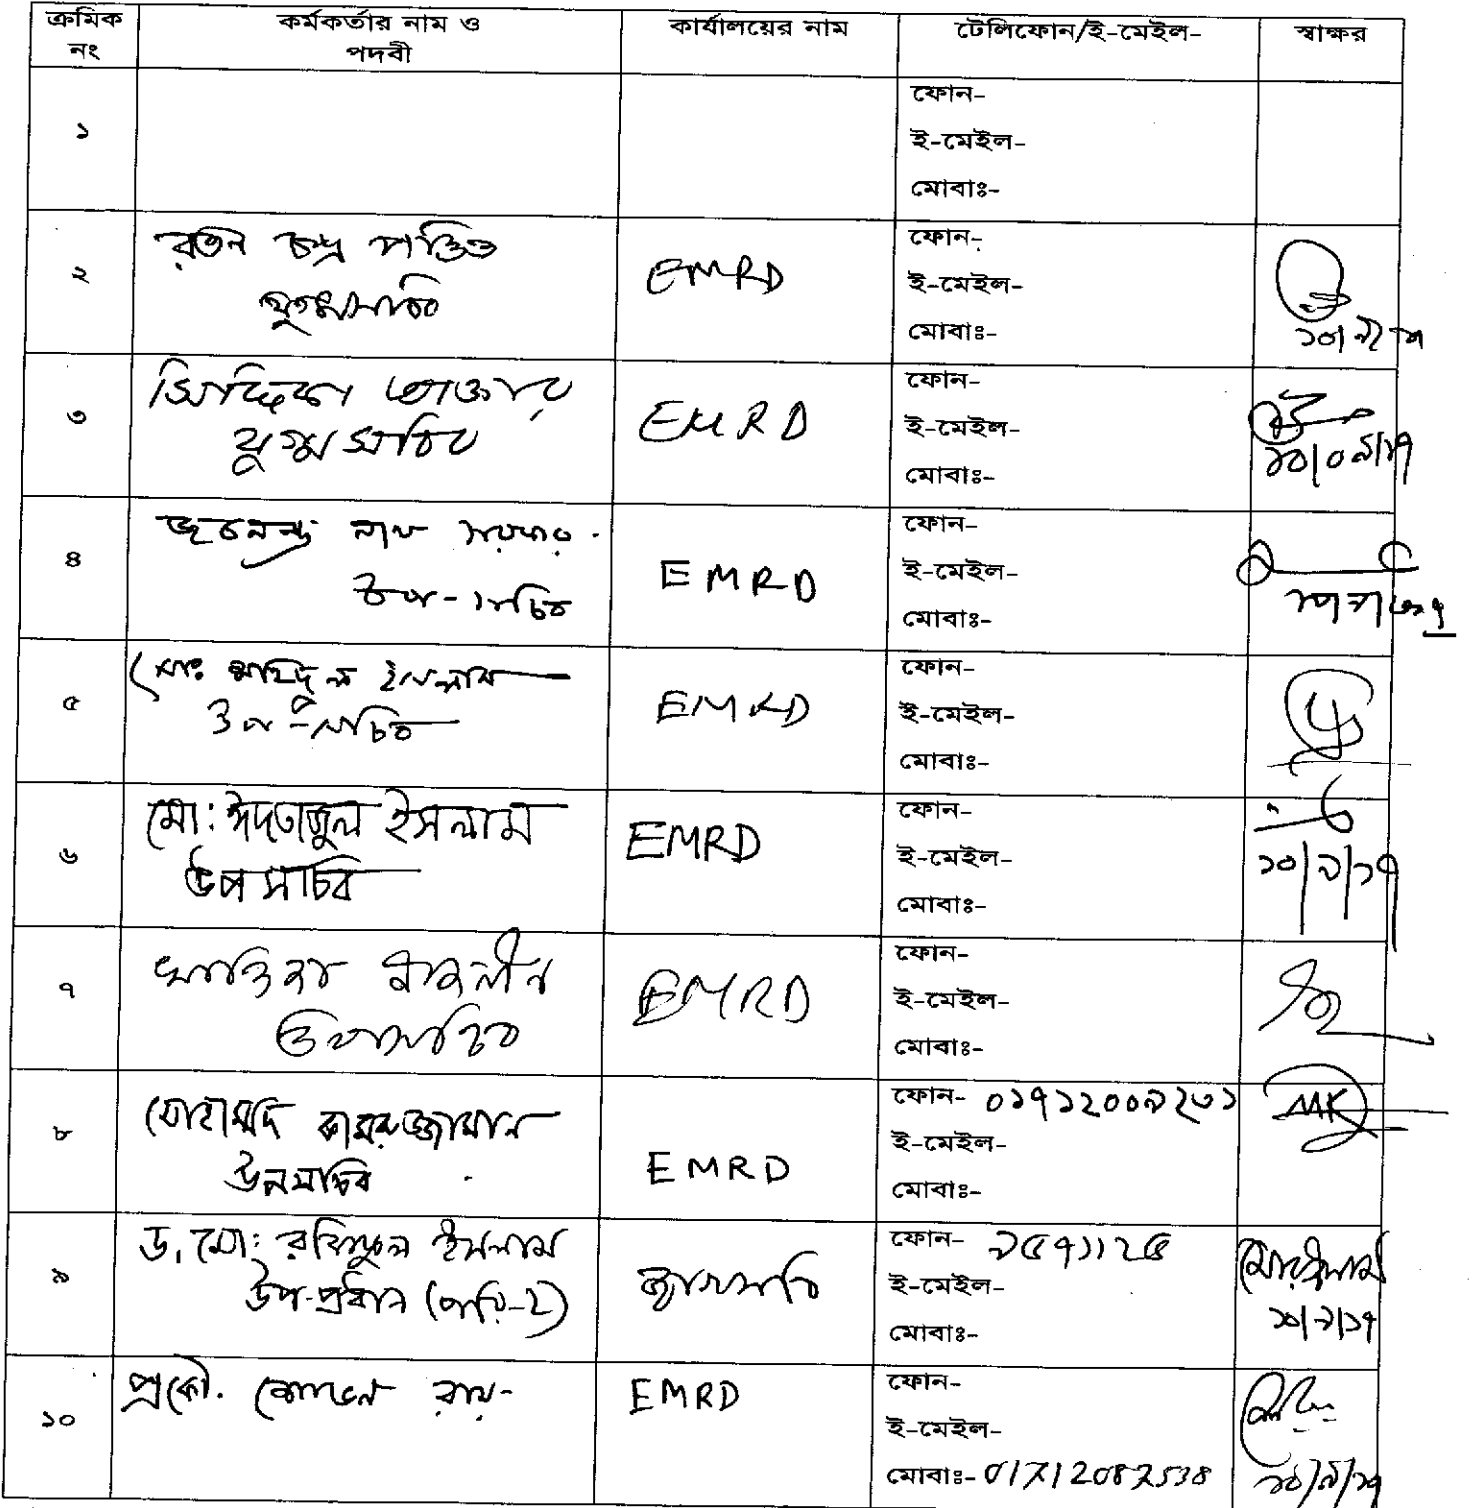 ক্রমিক নং কর্মকর্তার নাম ও পদবী কার্যালয়ের নাম টেলিফোন/ই-মেইল- স্বাক্ষর
১
ফোন-
ই-মেইল-
মোবাঃ-
২
রতন চন্দ্র পন্ডিত
যুগ্মসচিব
EMRD
ফোন-
ই-মেইল-
মোবাঃ-
৩
আক্তার
যুগ্ম সচিব
EMRD
ফোন-
ই-মেইল-
মোবাঃ-
১০/০৯/১৭
৪
নাথ সরকার
উপ-সচিব
EMRD
ফোন-
ই-মেইল-
মোবাঃ-
৫
মোঃ ইসলাম
উপ-সচিব
EMRD
ফোন-
ই-মেইল-
মোবাঃ-
৬
মো: ইসলাম
উপ সচিব
EMRD
ফোন-
ই-মেইল-
মোবাঃ-
১০/৯/১৭
৭
উপসচিব
EMRD
ফোন-
ই-মেইল-
মোবাঃ-
৮
মোহাম্মদ কামরুজ্জামান
উপসচিব
EMRD
ফোন-
ই-মেইল-
মোবাঃ-
৯
ড. মো: ইসলাম
উপ-প্রধান (পরি-২)
ফোন- ৯৫৭১১২৫
ই-মেইল-
মোবাঃ-
১০/৯/১৭
১০
প্রকৌ. রায়
EMRD
ফোন-
ই-মেইল-
মোবাঃ- 01712087538
১০/৯/১৭